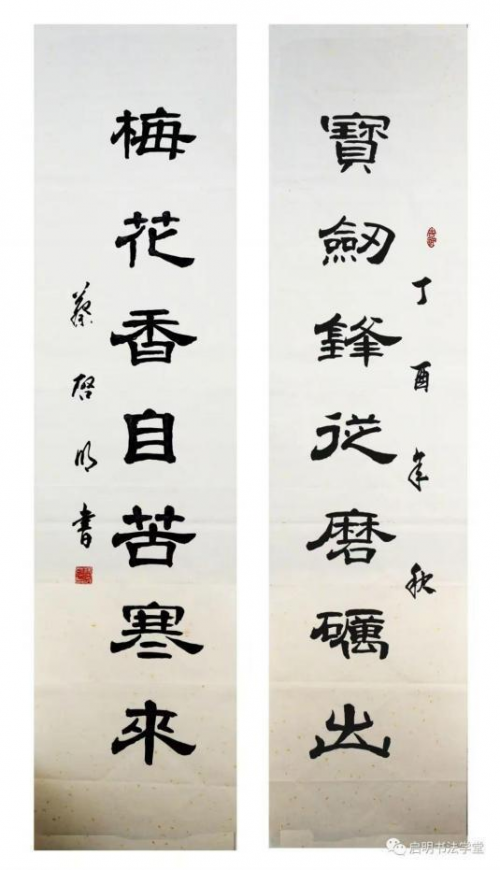 寶劔鋒從磨礪出
丁酉年秋
梅花香自苦寒來
蔡啓明書
启明书法学堂